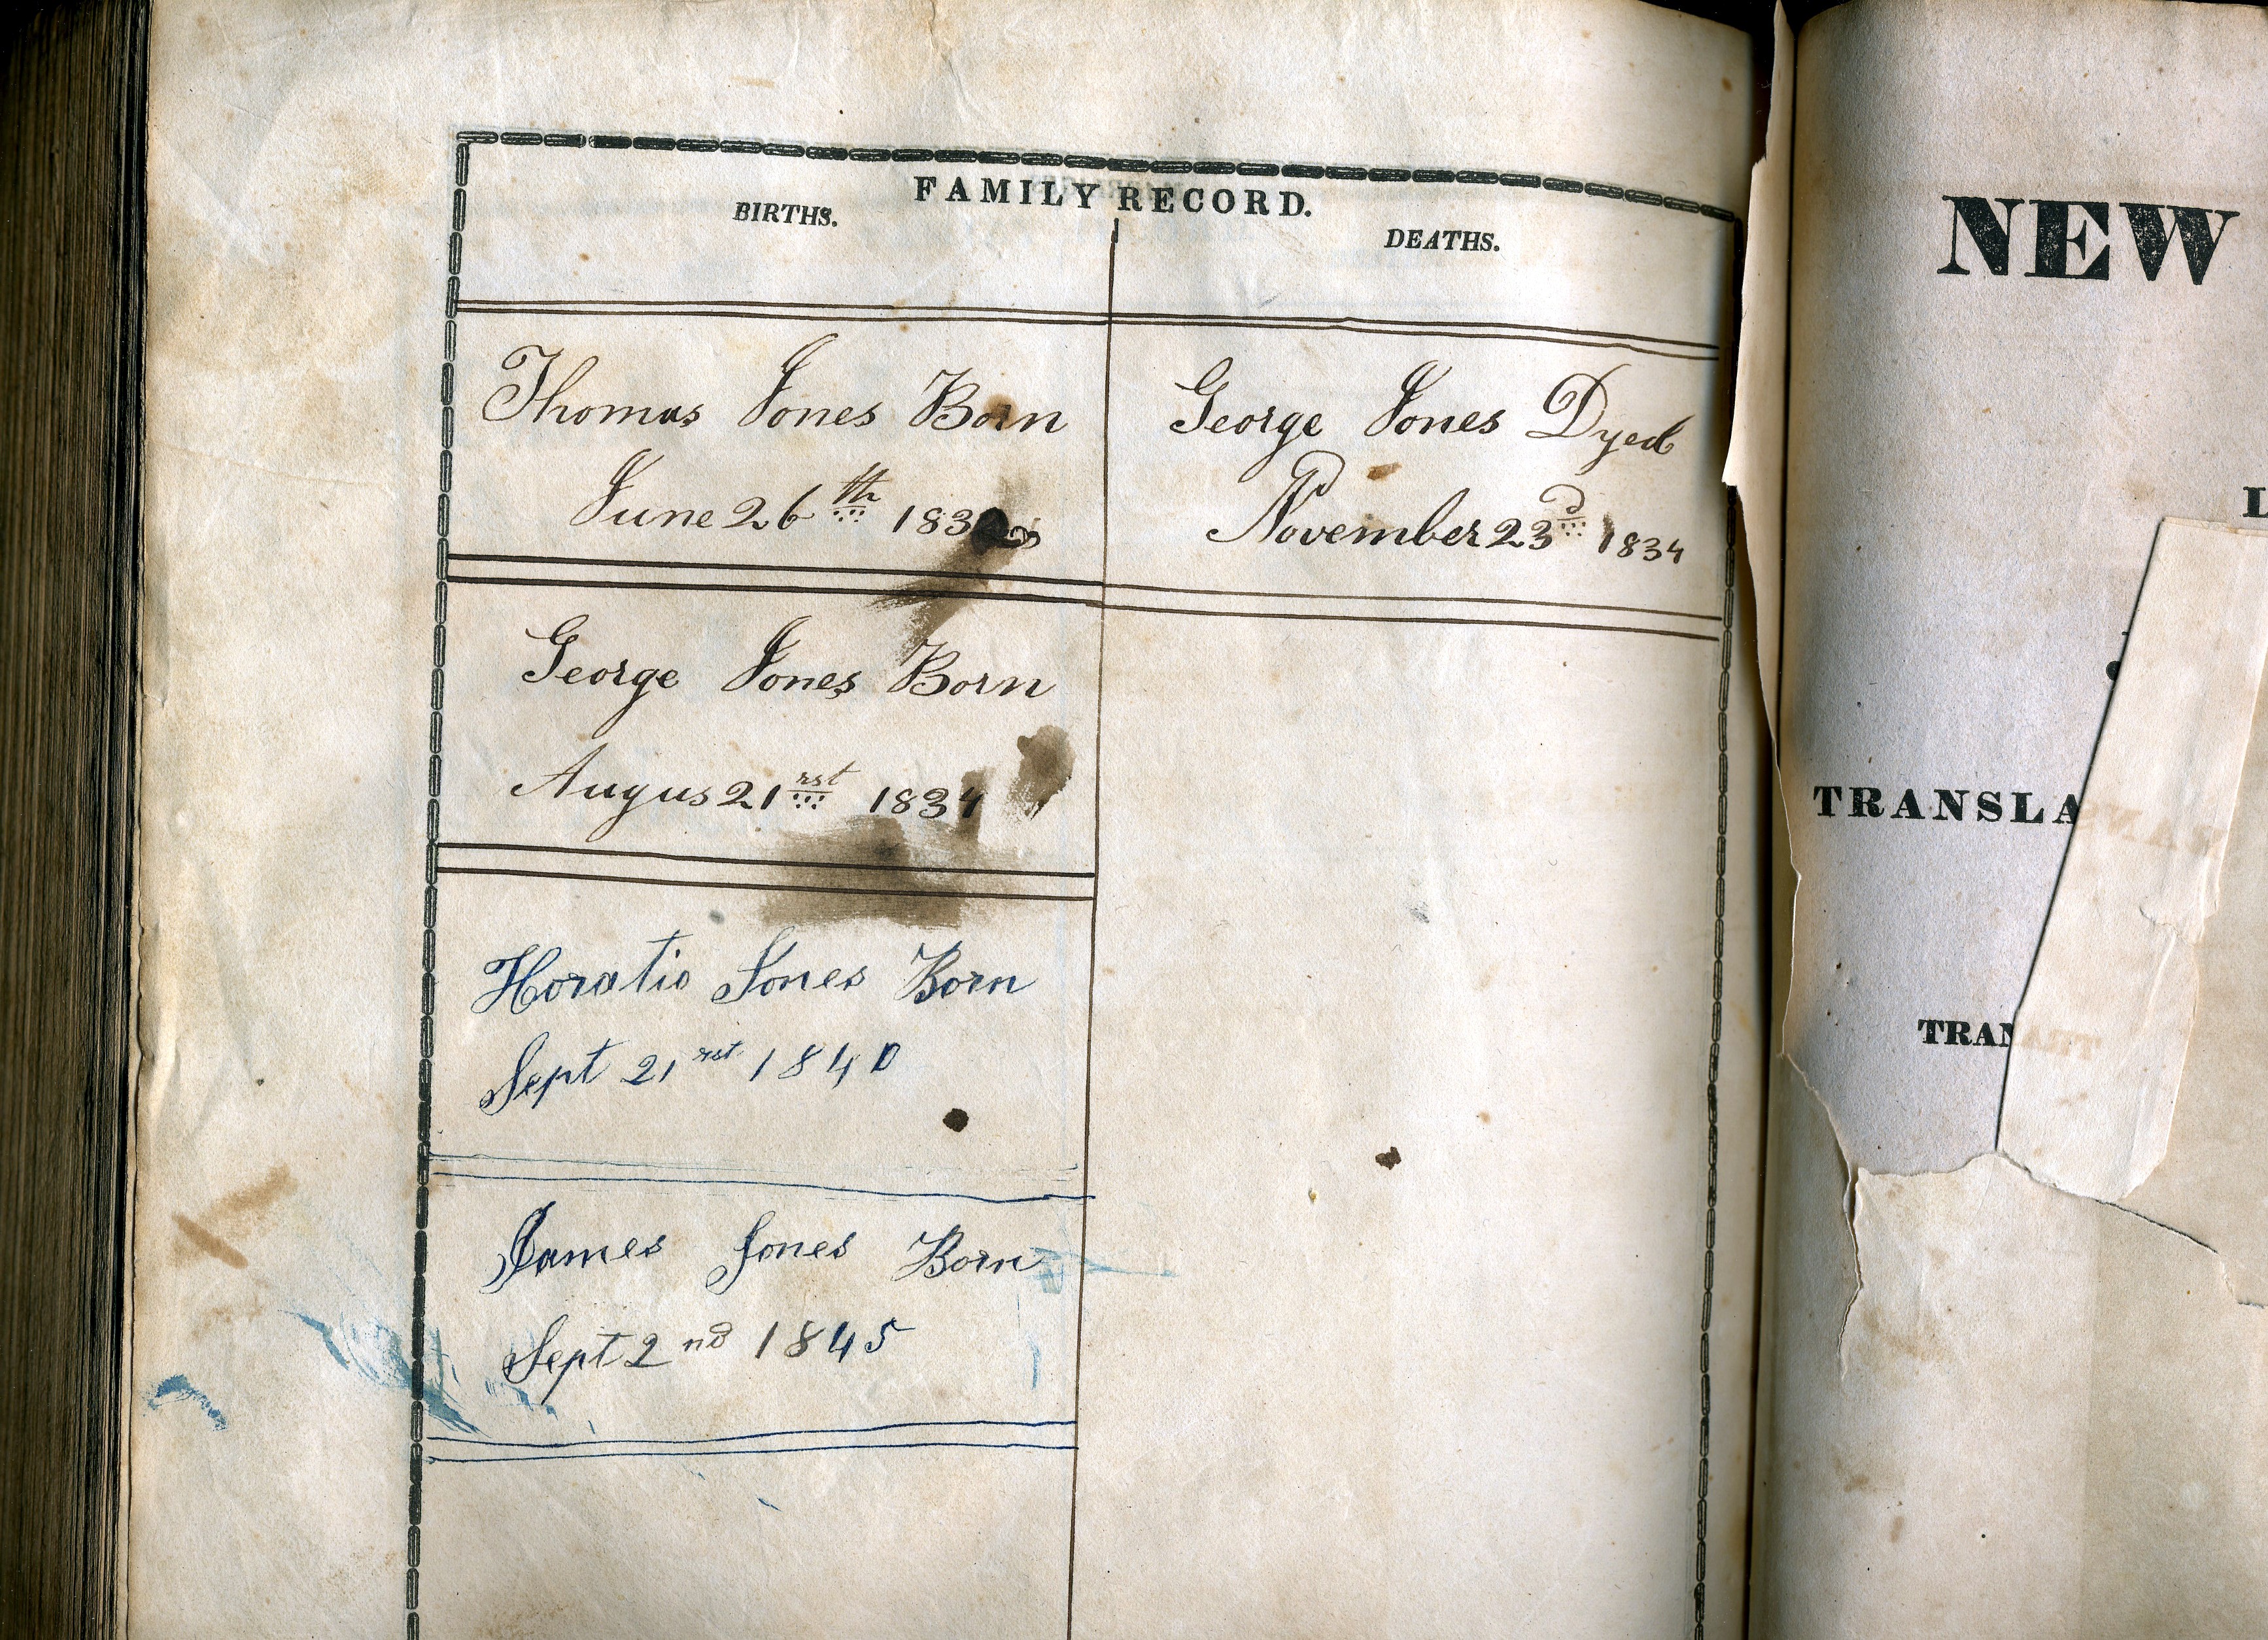 FAMILY RECORD.
BIRTHS.
Thomas Jones Born
June 26th 1832
George Jones Born
Augus 21rst 1834
Horatio Jones Born
Sept 21rst 1840
James Jones Born
Sept 2nd 1845
DEATHS.
George Jones Dyed
November 23d 1834
NEW
TRANSLA
TRAN